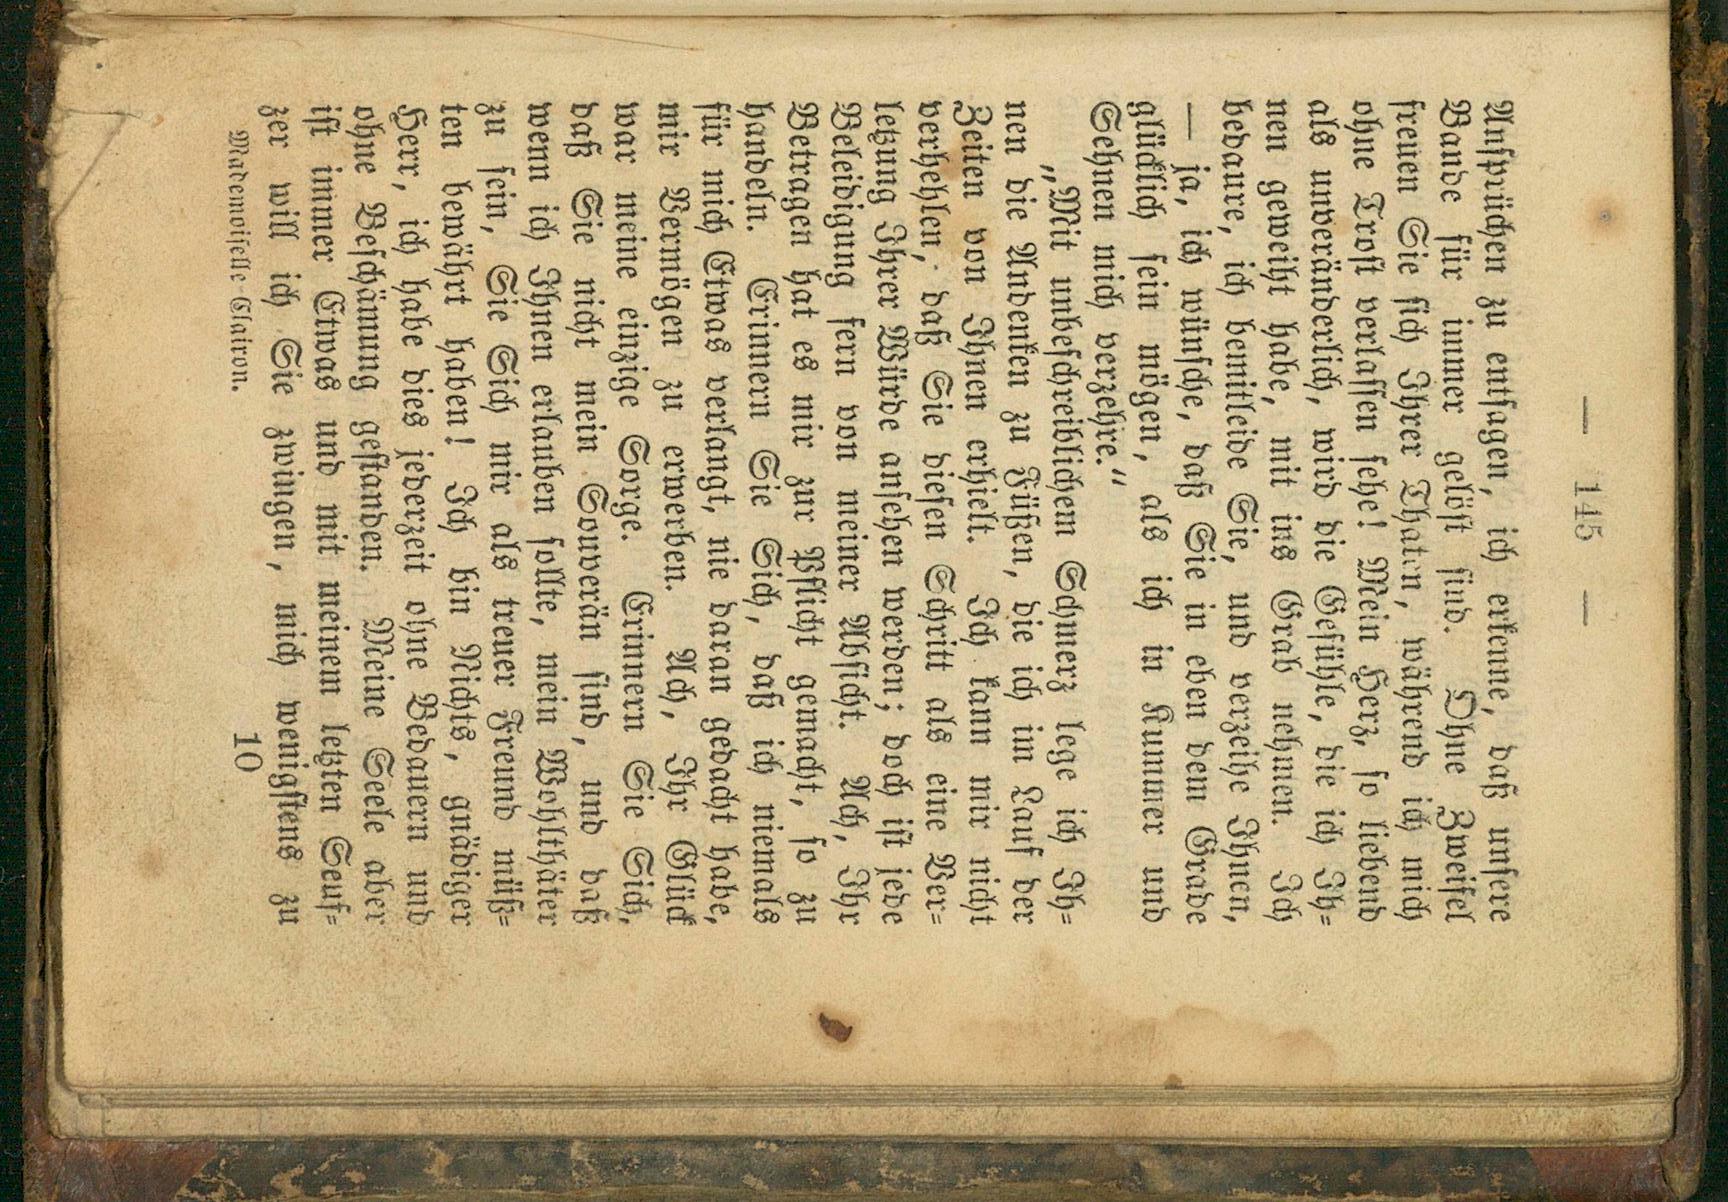 — 145 —
Ansprüchen zu entsagen, ich erkenne, daß unsere
Bande für immer gelöst sind. Ohne Zweifel
freuen Sie sich Ihrer Thaten, während ich mich
ohne Trost verlassen sehe! Mein Herz, so liebend
als unveränderlich, wird die Gefühle, die ich Ih-
nen geweiht habe, mit ins Grab nehmen. Ich
bedaure, ich bemitleide Sie, und verzeihe Ihnen,
— ja, ich wünsche, daß Sie in eben dem Grade
glücklich sein mögen, als ich in Kummer und
Sehnen mich verzehre.“
„Mit unbeschreiblichem Schmerz lege ich Ih-
nen die Andenken zu Füßen, die ich im Lauf der
Zeiten von Ihnen erhielt. Ich kann mir nicht
verhehlen, daß Sie diesen Schritt als eine Ver-
letzung Ihrer Würde ansehen werden; doch ist jede
Beleidigung fern von meiner Absicht. Ach, Ihr
Betragen hat es mir zur Pflicht gemacht, so zu
handeln. Erinnern Sie Sich, daß ich niemals
für mich Etwas verlangt, nie daran gedacht habe,
mir Vermögen zu erwerben. Ach, Ihr Glück
war meine einzige Sorge. Erinnern Sie Sich,
daß Sie nicht mein Souverän sind, und daß
wenn ich Ihnen erlauben sollte, mein Wohlthäter
zu sein, Sie Sich mir als treuer Freund müß-
ten bewährt haben! Ich bin Nichts, gnädiger
Herr, ich habe dies jederzeit ohne Bedauern und
ohne Beschämung gestanden. Meine Seele aber
ist immer Etwas und mit meinem letzten Seuf-
zer will ich Sie zwingen, mich wenigstens zu
Mademoiselle Clairon. 10